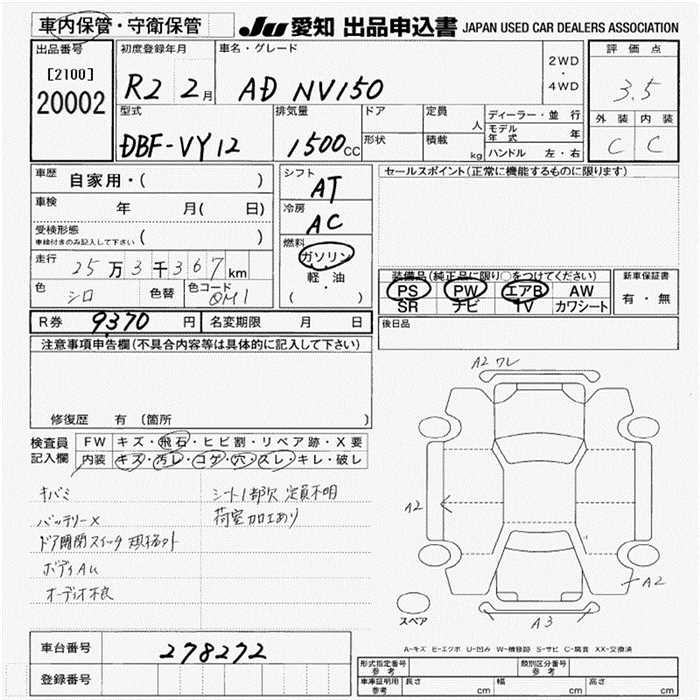 車内保管・守衛保管 JU 愛知 出品申込書 JAPAN USED CAR DEALERS ASSOCIATION
出品番号 初度登録年月 車名・グレード 2WD・4WD 評価点
[2100] R2 2月 AD NV150 3.5
20002
型式 排気量 ドア 定員 人 ディーラー・並行 外装 内装
DBF-VY12 1500CC 形状 積載 kg モデル年式 年 C C
ハンドル 左・右
車歴 自家用・( ) シフト AT セールスポイント(正常に機能するものに限ります)
車検 年 月( 日) 冷房 AC
受検形態 ( )
車検付きのみ記入して下さい
燃料 ガソリン・軽油・( )
走行 25万3千367km
色 シロ 色替 色コード QM1
装備品(純正品に限り○をつけてください) 新車保証書
PS PW エアB AW 有・無
SR ナビ TV カワシート
R券 9370円 名変期限 月 日 後日品
注意事項申告欄(不具合内容等は具体的に記入して下さい)
修復歴 有 (箇所 )
検査員記入欄 FW キズ・飛石・ヒビ割・リペア跡・X要
内装 キズ・汚レ・コゲ・穴・スレ・キレ・破レ
キバミ シート1部欠 定員不明
バッテリーX 荷室加工あり
ドア開閉スイッチ
ボディAU
オーディオ不良
A2 ワレ
A2
A2
A3
スペア
A-キズ E-エクボ U-凹み W-補修跡 S-サビ C-腐食 XX-交換済
車台番号 278272
登録番号
形式指定番号 参考 類別区分番号 参考
車庫証明用 参考 長さ cm 幅 cm 高さ cm